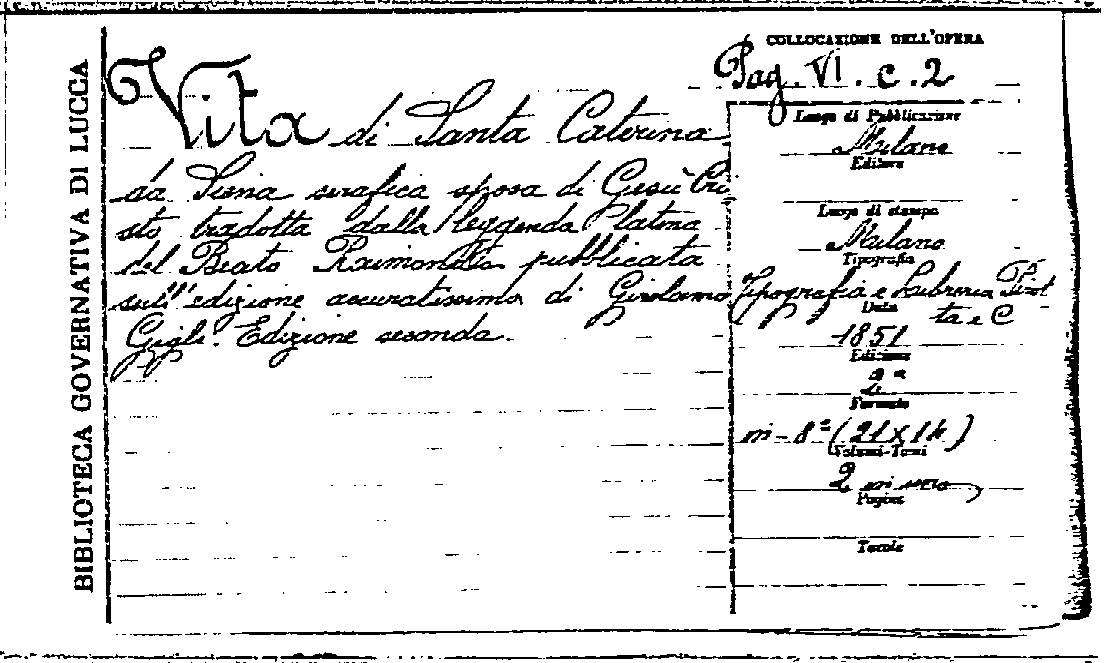 BIBLIOTECA GOVERNATIVA DI LUCCA
Vita di Santa Caterina
da Siena serafica sposa di Gesù Cri
sto tradotta dalla leggenda latina
del Beato Raimondo pubblicata
sull'edizione accuratissima di Girolamo
Gigli. Edizione seconda.
COLLOCAZIONE DELL'OPERA
Pag. VI. c. 2
Luogo di Pubblicazione
Milano
Editore
Luogo di stampa
Milano
Tipografia
Tipografia e Libreria Pirot
ta e C
Data
1851
Edizione
2ª
Formato
in - 8º (21 x 14)
Volumi-Tomi
2 in uno
Pagine
Tavole